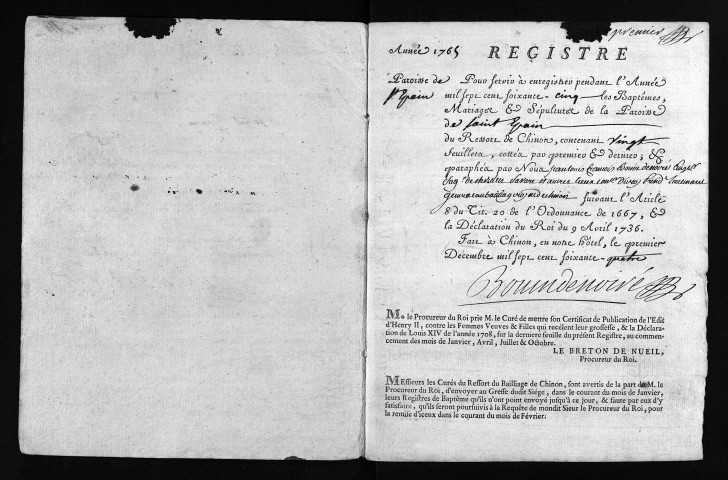 premier
Année 1765 REGISTRE
Paroisse de Pour servir à enregistrer pendant l'Année
St Epain mil sept cent soixante-cinq les Baptêmes,
Mariages & Sépultures de la Paroisse
de Saint Epain
du Ressort de Chinon, contenant vingt
feuillets, cottés par premier & dernier; &
paraphés par Nous
suivant l'Article
8 du Tit. 20 de l'Ordonnance de 1667, &
la Déclaration du Roi du 9 Avril 1736.
Fait à Chinon, en notre hôtel, le premier
Décembre mil sept cent soixante-quatre
Bouindenoiré
M. le Procureur du Roi prie M. le Curé de mettre son Certificat de Publication de l'Edit
d'Henry II, contre les Femmes Veuves & Filles qui recélent leur grossesse, & la Déclaration
de Louis XIV de l'année 1708, sur la derniere feuille du présent Registre, au commencement
des mois de Janvier, Avril, Juillet & Octobre.
LE BRETON DE NUEIL,
Procureur du Roi.
MEssieurs les Curés du Ressort du Bailliage de Chinon, sont avertis de la part de M. le
Procureur du Roi, d'envoyer au Greffe dudit Siége, dans le courant du mois de Janvier,
leurs Registres de Baptême qu'ils n'ont point envoyé jusqu'à ce jour, & faute par eux d'y
satisfaire, qu'ils seront poursuivis à la Requête de mondit Sieur le Procureur du Roi, pour
la remise d'iceux dans le courant du mois de Février.